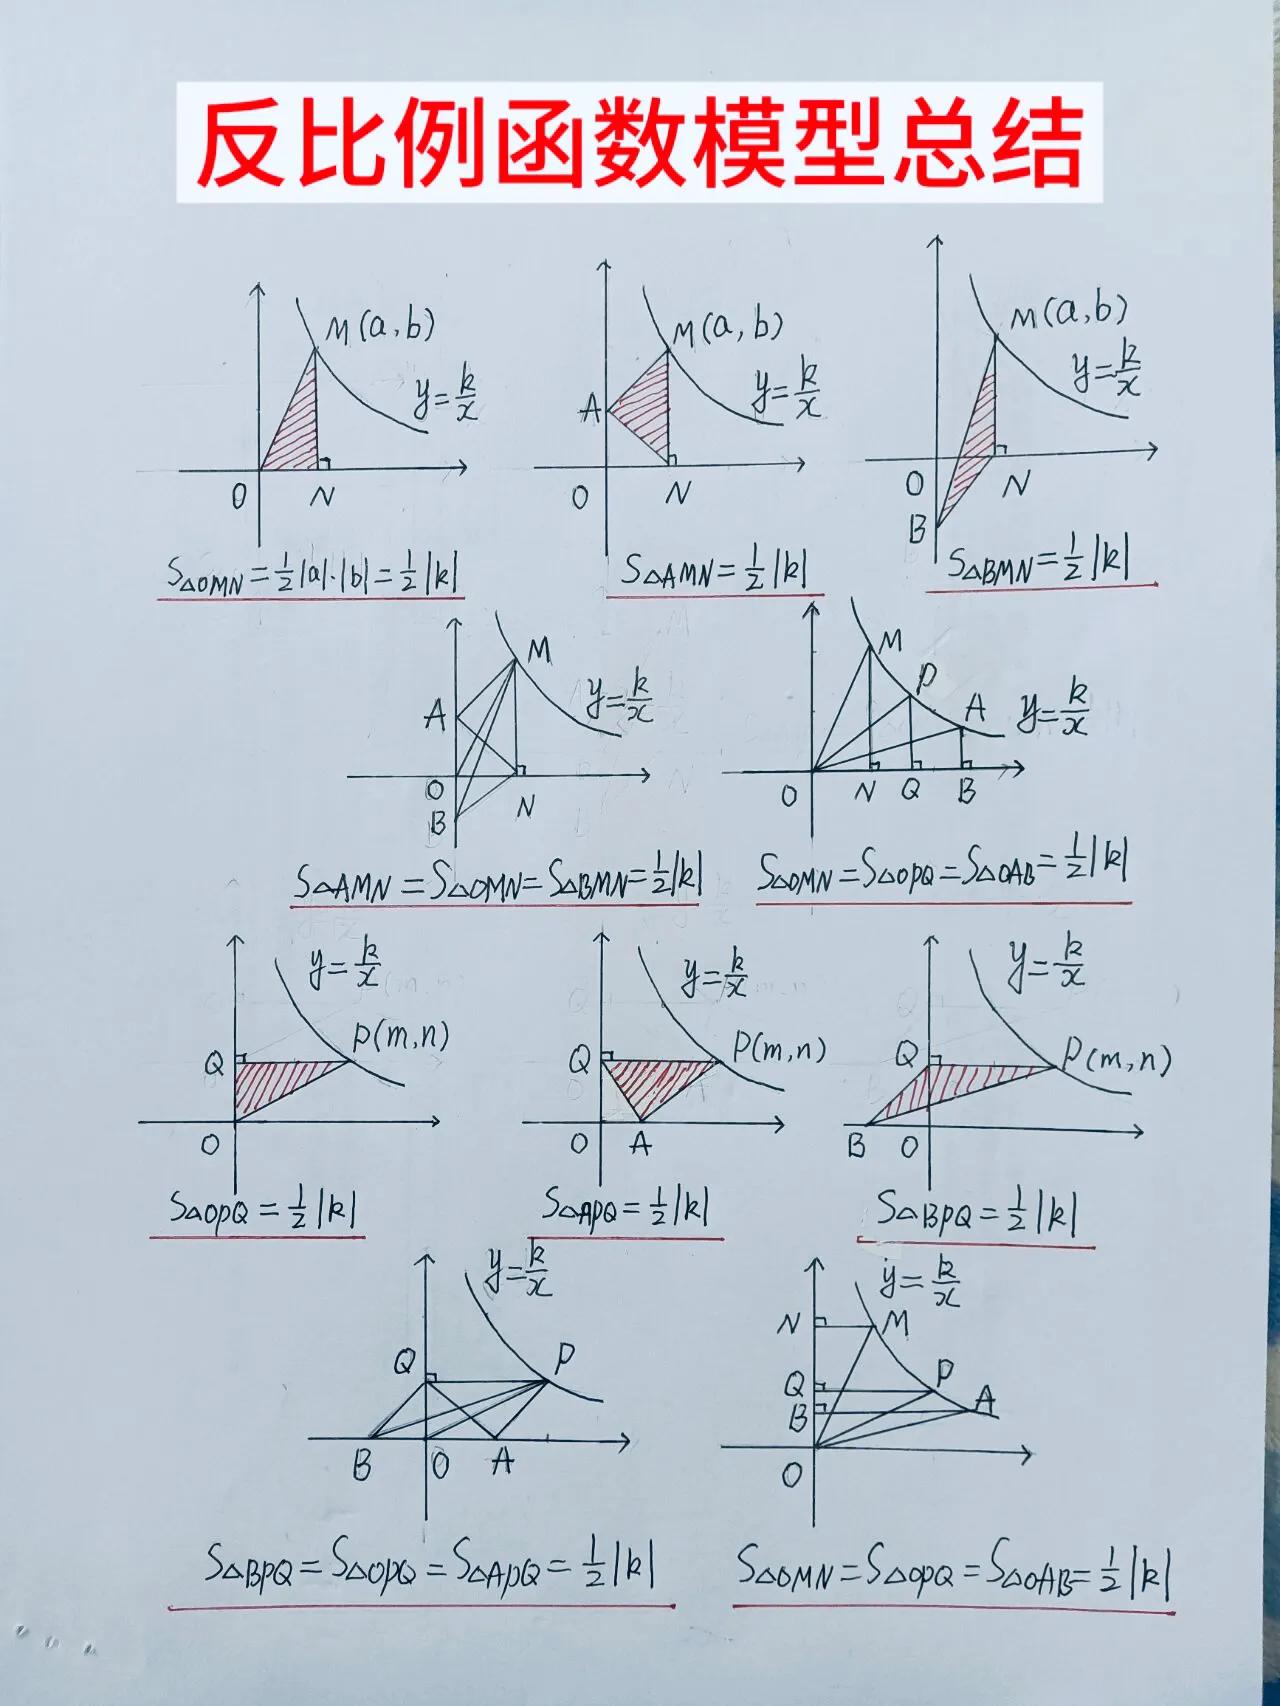 反比例函数模型总结
M(a,b)
y=k/x
O
N
S△OMN=1/2|a|·|b|=1/2|k|
M(a,b)
y=k/x
A
O
N
S△AMN=1/2|k|
M(a,b)
y=k/x
O
N
B
S△BMN=1/2|k|
M
y=k/x
A
O
N
B
S△AMN=S△OMN=S△BMN=1/2|k|
M
P
A
y=k/x
O
N
Q
B
S△OMN=S△OPQ=S△OAB=1/2|k|
y=k/x
Q
P(m,n)
O
S△OPQ=1/2|k|
y=k/x
Q
P(m,n)
O
A
S△APQ=1/2|k|
y=k/x
Q
P(m,n)
B
O
S△BPQ=1/2|k|
y=k/x
Q
P
B
O
A
S△BPQ=S△OPQ=S△APQ=1/2|k|
y=k/x
N
M
Q
P
B
A
O
S△OMN=S△OPQ=S△OAB=1/2|k|